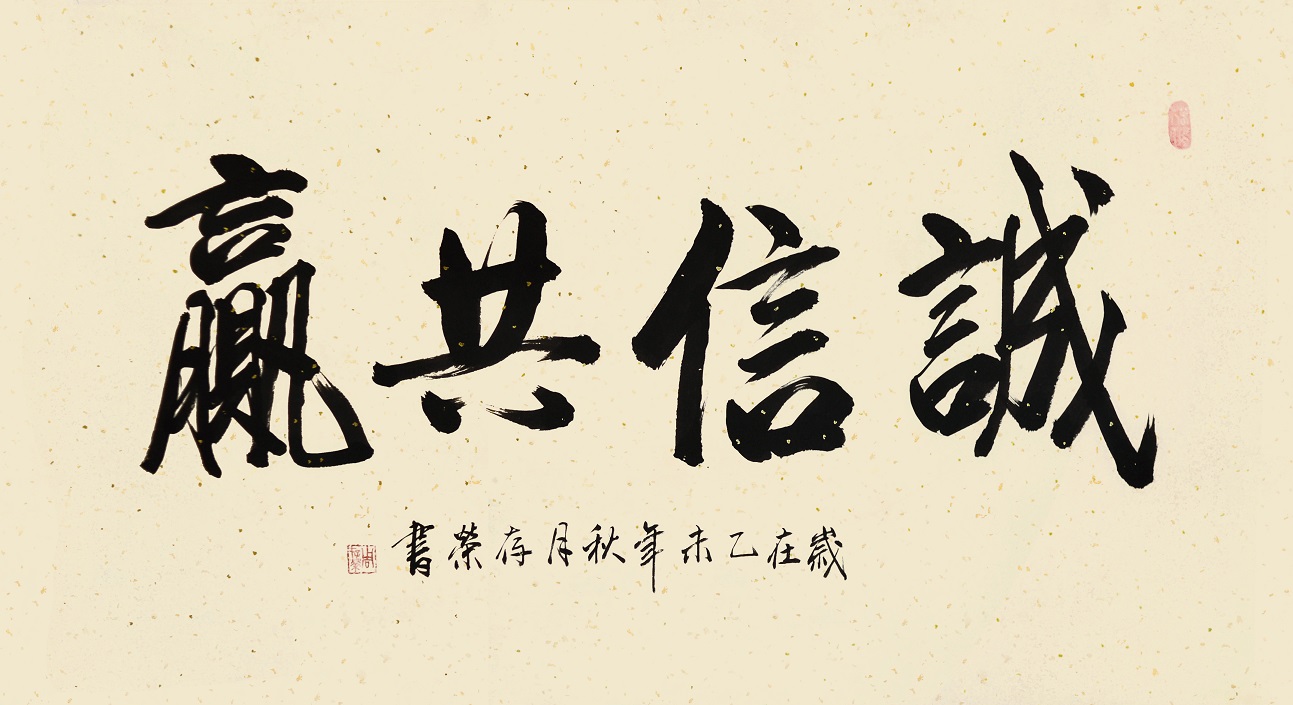 誠信共贏
歲在乙未年秋月存榮書